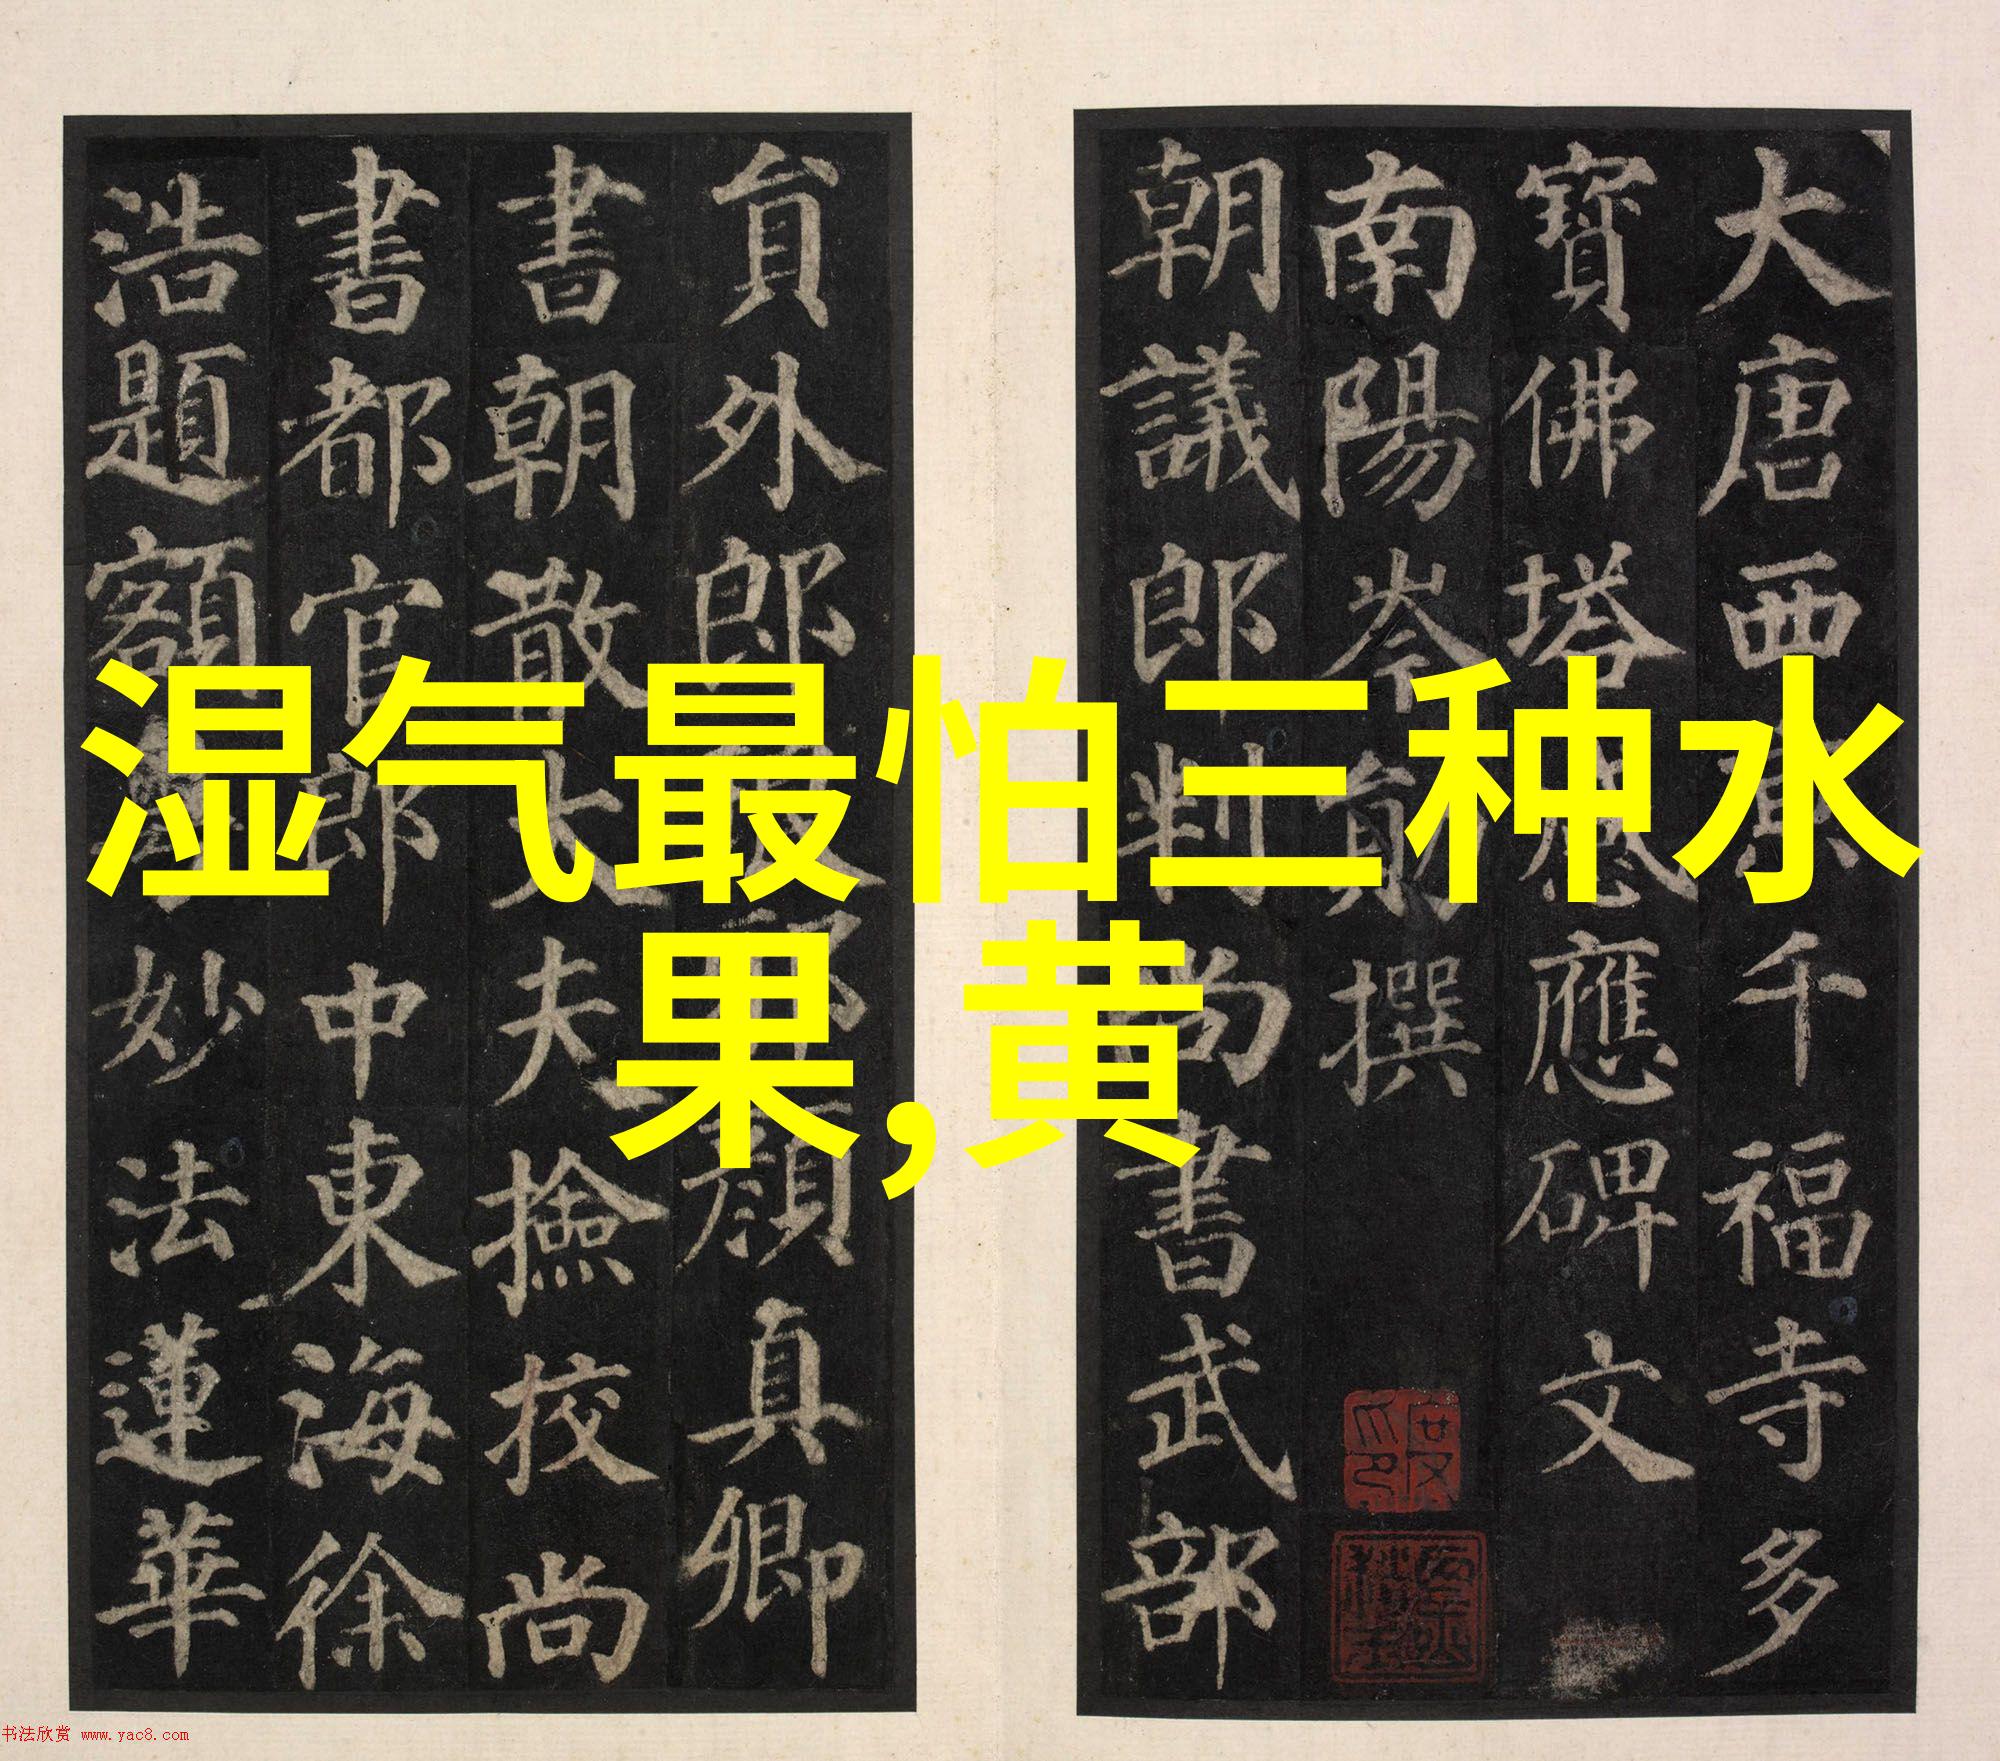 大唐西京千福寺多
寶佛塔感應碑文
南陽岑勛撰
朝議郎判尚書武部
員外郎琅邪顏真卿
書朝散大夫撿校尚
書都官郎中東海徐
浩題額
妙法蓮華
湿气最怕三种水
果,黄
书法欣赏 www.yac8.com